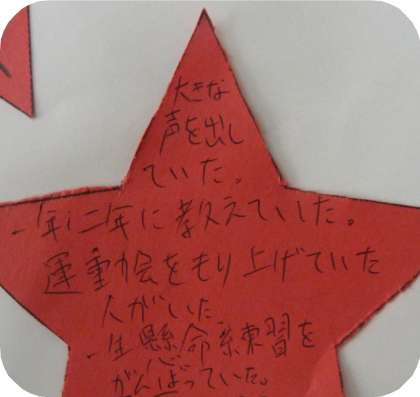 大きな
声を出し
ていた。
一年に二年に教えていました。
運動会をもり上げていた
人がいた
一生懸命練習を
がんばっていた。